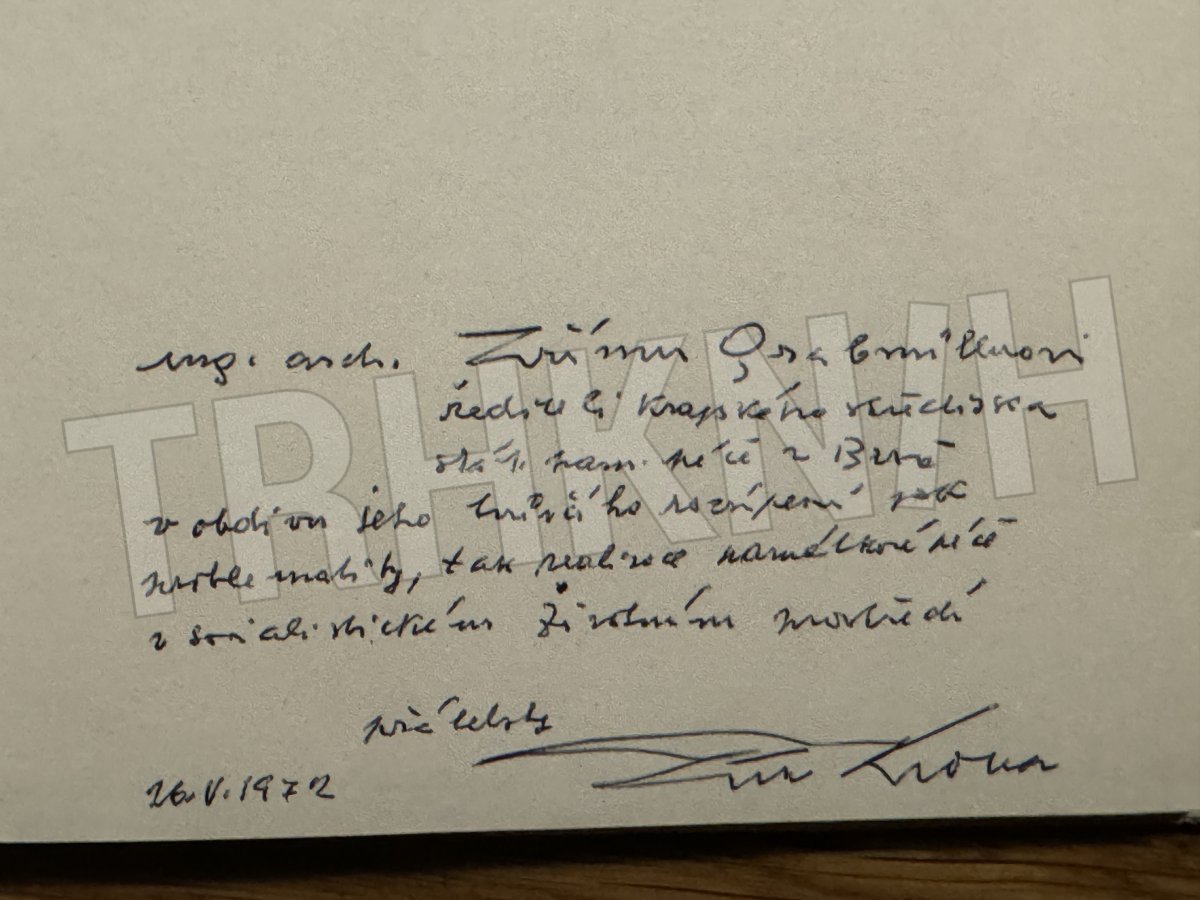 ing. arch. Jiřímu Grabmüllerovi
řediteli Krajského střediska
stát. pam. péče v Brně
v obdivu jeho tvůrčího rozvíjení jak
problematiky, tak realizace památkové péče
v socialistickém životním prostředí
přátelsky
26.V.1972
TRHKNIH